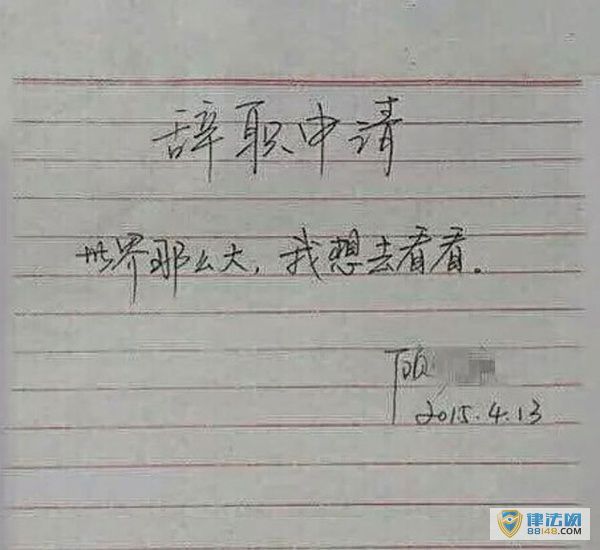 辞职申请
世界那么大,我想去看看。
顾
2015.4.13
律法网
88148.com